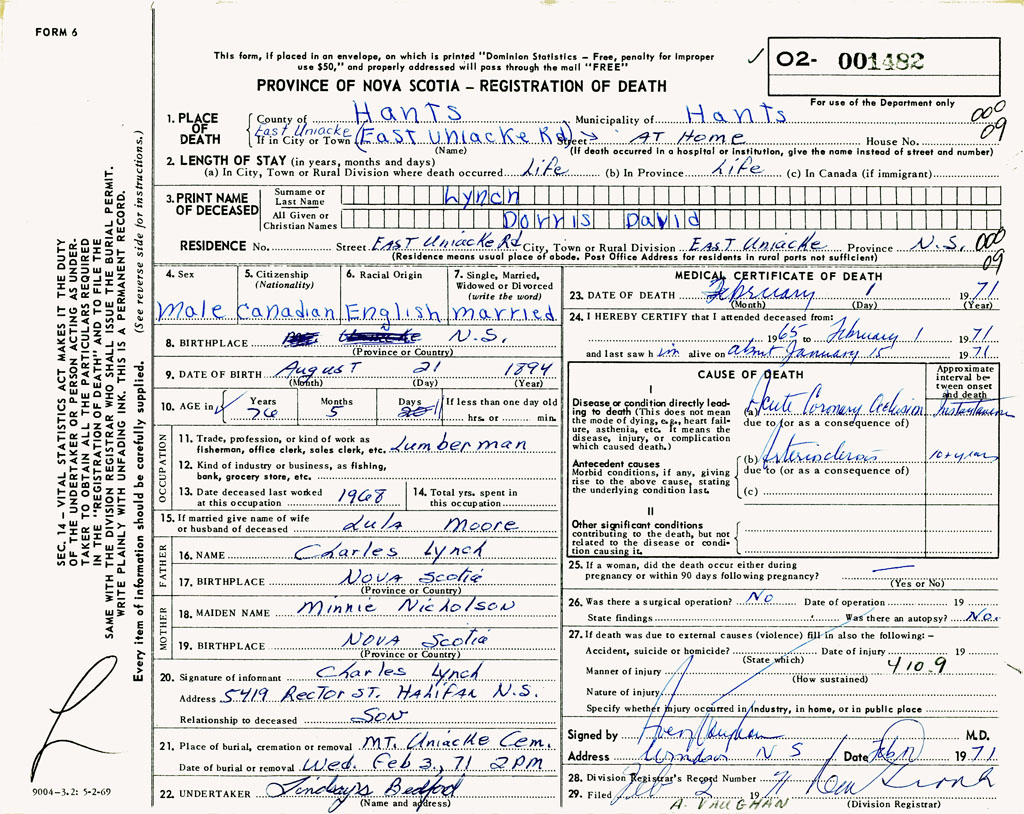 FORM 6
This form, if placed in an envelope, on which is printed "Dominion Statistics – Free, penalty for improper
use $50," and properly addressed will pass through the mail "FREE"
PROVINCE OF NOVA SCOTIA – REGISTRATION OF DEATH
✓ 02- 001482
For use of the Department only
SEC. 14 – VITAL STATISTICS ACT MAKES IT THE DUTY
OF THE UNDERTAKER OR PERSON ACTING AS UNDER-
TAKER TO OBTAIN ALL THE PARTICULARS REQUIRED
IN THE "REGISTRATION OF DEATH" AND TO FILE THE
SAME WITH THE DIVISION REGISTRAR WHO SHALL ISSUE THE BURIAL PERMIT.
WRITE PLAINLY WITH UNFADING INK. THIS IS A PERMANENT RECORD.
Every item of information should be carefully supplied. (See reverse side for instructions.)
1. PLACE OF DEATH
County of Hants Municipality of Hants 000
If in City or Town East Uniacke (East Uniacke Rd) Street → AT Home House No. 09
(Name) (If death occurred in a hospital or institution, give the name instead of street and number)
2. LENGTH OF STAY (in years, months and days)
(a) In City, Town or Rural Division where death occurred Life (b) In Province Life (c) In Canada (if immigrant)
3. PRINT NAME OF DECEASED
Surname or Last Name Lynch
All Given or Christian Names Dorris David
RESIDENCE No. Street East Uniacke Rd City, Town or Rural Division East Uniacke Province N.S. 000
(Residence means usual place of abode. Post Office Address for residents in rural ports not sufficient) 09
4. Sex 5. Citizenship (Nationality) 6. Racial Origin 7. Single, Married, Widowed or Divorced (write the word)
Male Canadian English married
8. BIRTHPLACE N.S.
(Province or Country)
9. DATE OF BIRTH August 21 1894
(Month) (Day) (Year)
10. AGE in ✓ Years 76 Months 5 Days If less than one day old hrs. or min.
OCCUPATION
11. Trade, profession, or kind of work as
fisherman, office clerk, sales clerk, etc. Lumberman
12. Kind of industry or business, as fishing,
bank, grocery store, etc.
13. Date deceased last worked
at this occupation 1968
14. Total yrs. spent in
this occupation
15. If married give name of wife
or husband of deceased Lula Moore
FATHER
16. NAME Charles Lynch
17. BIRTHPLACE Nova Scotia
(Province or Country)
MOTHER
18. MAIDEN NAME Minnie Nicholson
19. BIRTHPLACE Nova Scotia
(Province or Country)
20. Signature of informant Charles Lynch
Address 5419 Rector St. Halifax N.S.
Relationship to deceased Son
21. Place of burial, cremation or removal MT. Uniacke Cem.
Date of burial or removal Wed. Feb 3, 71 2 PM
22. UNDERTAKER Lindsays Bedford
(Name and address)
9004-3.2: 5-2-69
MEDICAL CERTIFICATE OF DEATH
23. DATE OF DEATH February 1 1971
(Month) (Day) (Year)
24. I HEREBY CERTIFY that I attended deceased from:
1965 to February 1 1971
and last saw him alive on about January 15 1971
CAUSE OF DEATH
Approximate interval between onset and death
I
Disease or condition directly lead-
ing to death (This does not mean
the mode of dying, e.g., heart fail-
ure, asthenia, etc. It means the
disease, injury, or complication
which caused death.)
(a) Acute Coronary Occlusion
due to (or as a consequence of)
Antecedent causes
Morbid conditions, if any, giving
rise to the above cause, stating
the underlying condition last.
(b) 10+ years
due to (or as a consequence of)
(c)
II
Other significant conditions
contributing to the death, but not
related to the disease or condi-
tion causing it.
25. If a woman, did the death occur either during
pregnancy or within 90 days following pregnancy? —
(Yes or No)
26. Was there a surgical operation? No Date of operation 19
State findings Was there an autopsy? No.
27. If death was due to external causes (violence) fill in also the following: –
Accident, suicide or homicide? Date of injury 19
(State which)
Manner of injury 410.9
(How sustained)
Nature of injury
Specify whether injury occurred in industry, in home, or in public place
Signed by M.D.
Address Windsor N S Date 1971
28. Division Registrar's Record Number
29. Filed Feb 2 1971
(Division Registrar)
A. VAUGHAN